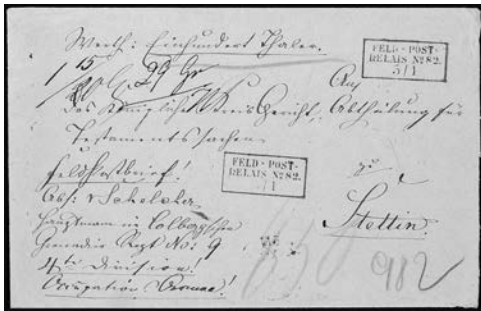 Werth: Einhundert Thaler.
FELD-POST-
RELAIS No 82.
5/1
29 Gr
An
das Königliche Kreis Gericht, Abtheilung für
Testaments sachen
zu
Stettin.
Feldpostbrief!
FELD-POST-
RELAIS No 82.
5/1
Abs:
Hauptmann im Colbergschen
Grenadier Regt No: 9
4te Division.
Occupation Armee!
982